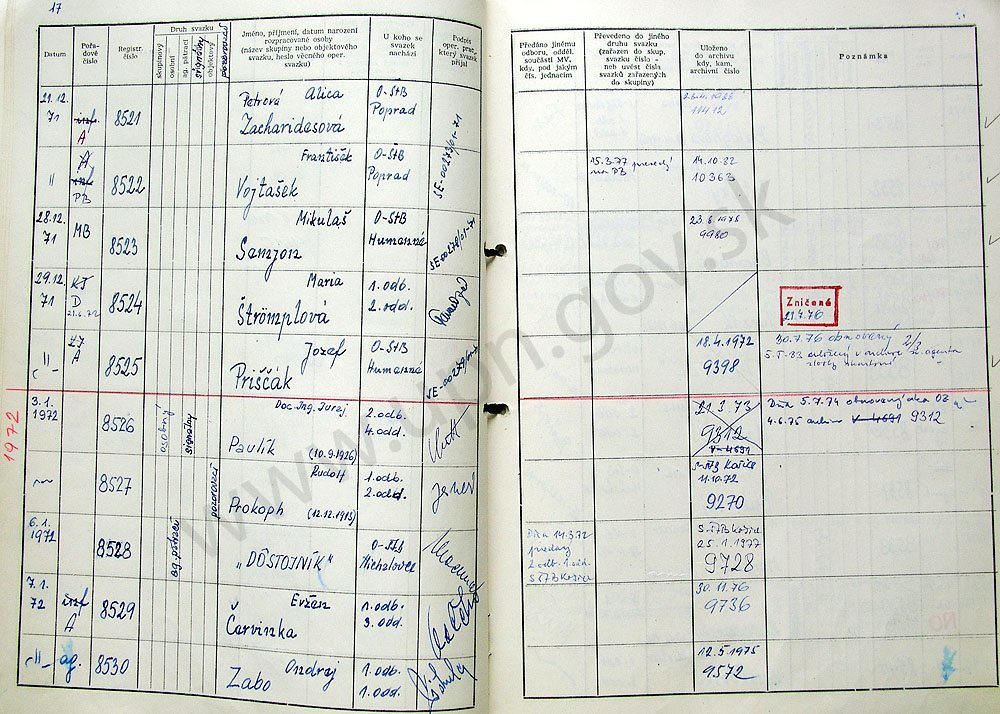 17
Datum
Pořadové číslo
Registr. číslo
Druh svazku
skupinový
osobní
ag. pátrací
signálny
objektový
pozorovací
Jméno, příjmení, datum narození
rozpracované osoby
(název skupiny nebo objektového
svazku, heslo věcného oper.
svazku)
U koho se
svazek
nachází
Podpis
oper. prac.,
který svazek
přijal
Předáno jinému
odboru, odděl.
součásti MV,
kdy, pod jakým
čís. jednacím
Převedeno do jiného
druhu svazku
(zařazen do skup.
svazku číslo -
neb uvést čísla
svazků zařazených
do skupiny)
Uloženo
do archivu
kdy, kam,
archivní číslo
Poznámka
21.12.
71
inf.
A
8521
Petrová Alica
Zacharidesová
O-ŠtB
Poprad
SE-00273/01-71
11412
"
A
inf
PB
8522
František
Vojtašek
O-ŠtB
Poprad
15.3.77
na PB
14.10.82
10363
28.12.
71
MB
8523
Mikuláš
Samjon
O-ŠtB
Humenné
SE-00278/01-71
23.6.1975
9980
29.12.
71
KJ
D
21.6.72
8524
Maria
Štrömplová
1. odb.
2. odd.
Zničené
21.4.76
-"-
A
8525
Jozef
Priščák
O-ŠtB
Humenné
18.4.1972
9398
30.7.76 obnovený
1972
3.1.
1972
8526
osobný
signálny
Doc. Ing. Juraj
Pavlik (10.9.1926)
2. odb.
4. odd.
21.3.73
9312
V-4691
Dňa 5.7.74 obnovený ako
4.6.75 V-4691 9312
8527
pozorovací
Rudolf
Prokoph (12.12.1913)
1. odb.
2. odd.
11.10.72
9270
6.1.
1972
8528
ag. pátrací
„DÔSTOJNÍK"
O-ŠtB
Michalovce
Dňa 14.3.72
predaný
2. odb. 1. odd.
S ŠTB Košice
S-ŠTB Košice
25.1.1977
9728
7.1.
72
inf
A
8529
Evžen
Červinka
1. odb.
3. odd.
30.11.76
9736
-"-
ag.
8530
Ondrej
Zabo
1. odd.
1. odd.
12.5.1975
9572
www.upn.gov.sk